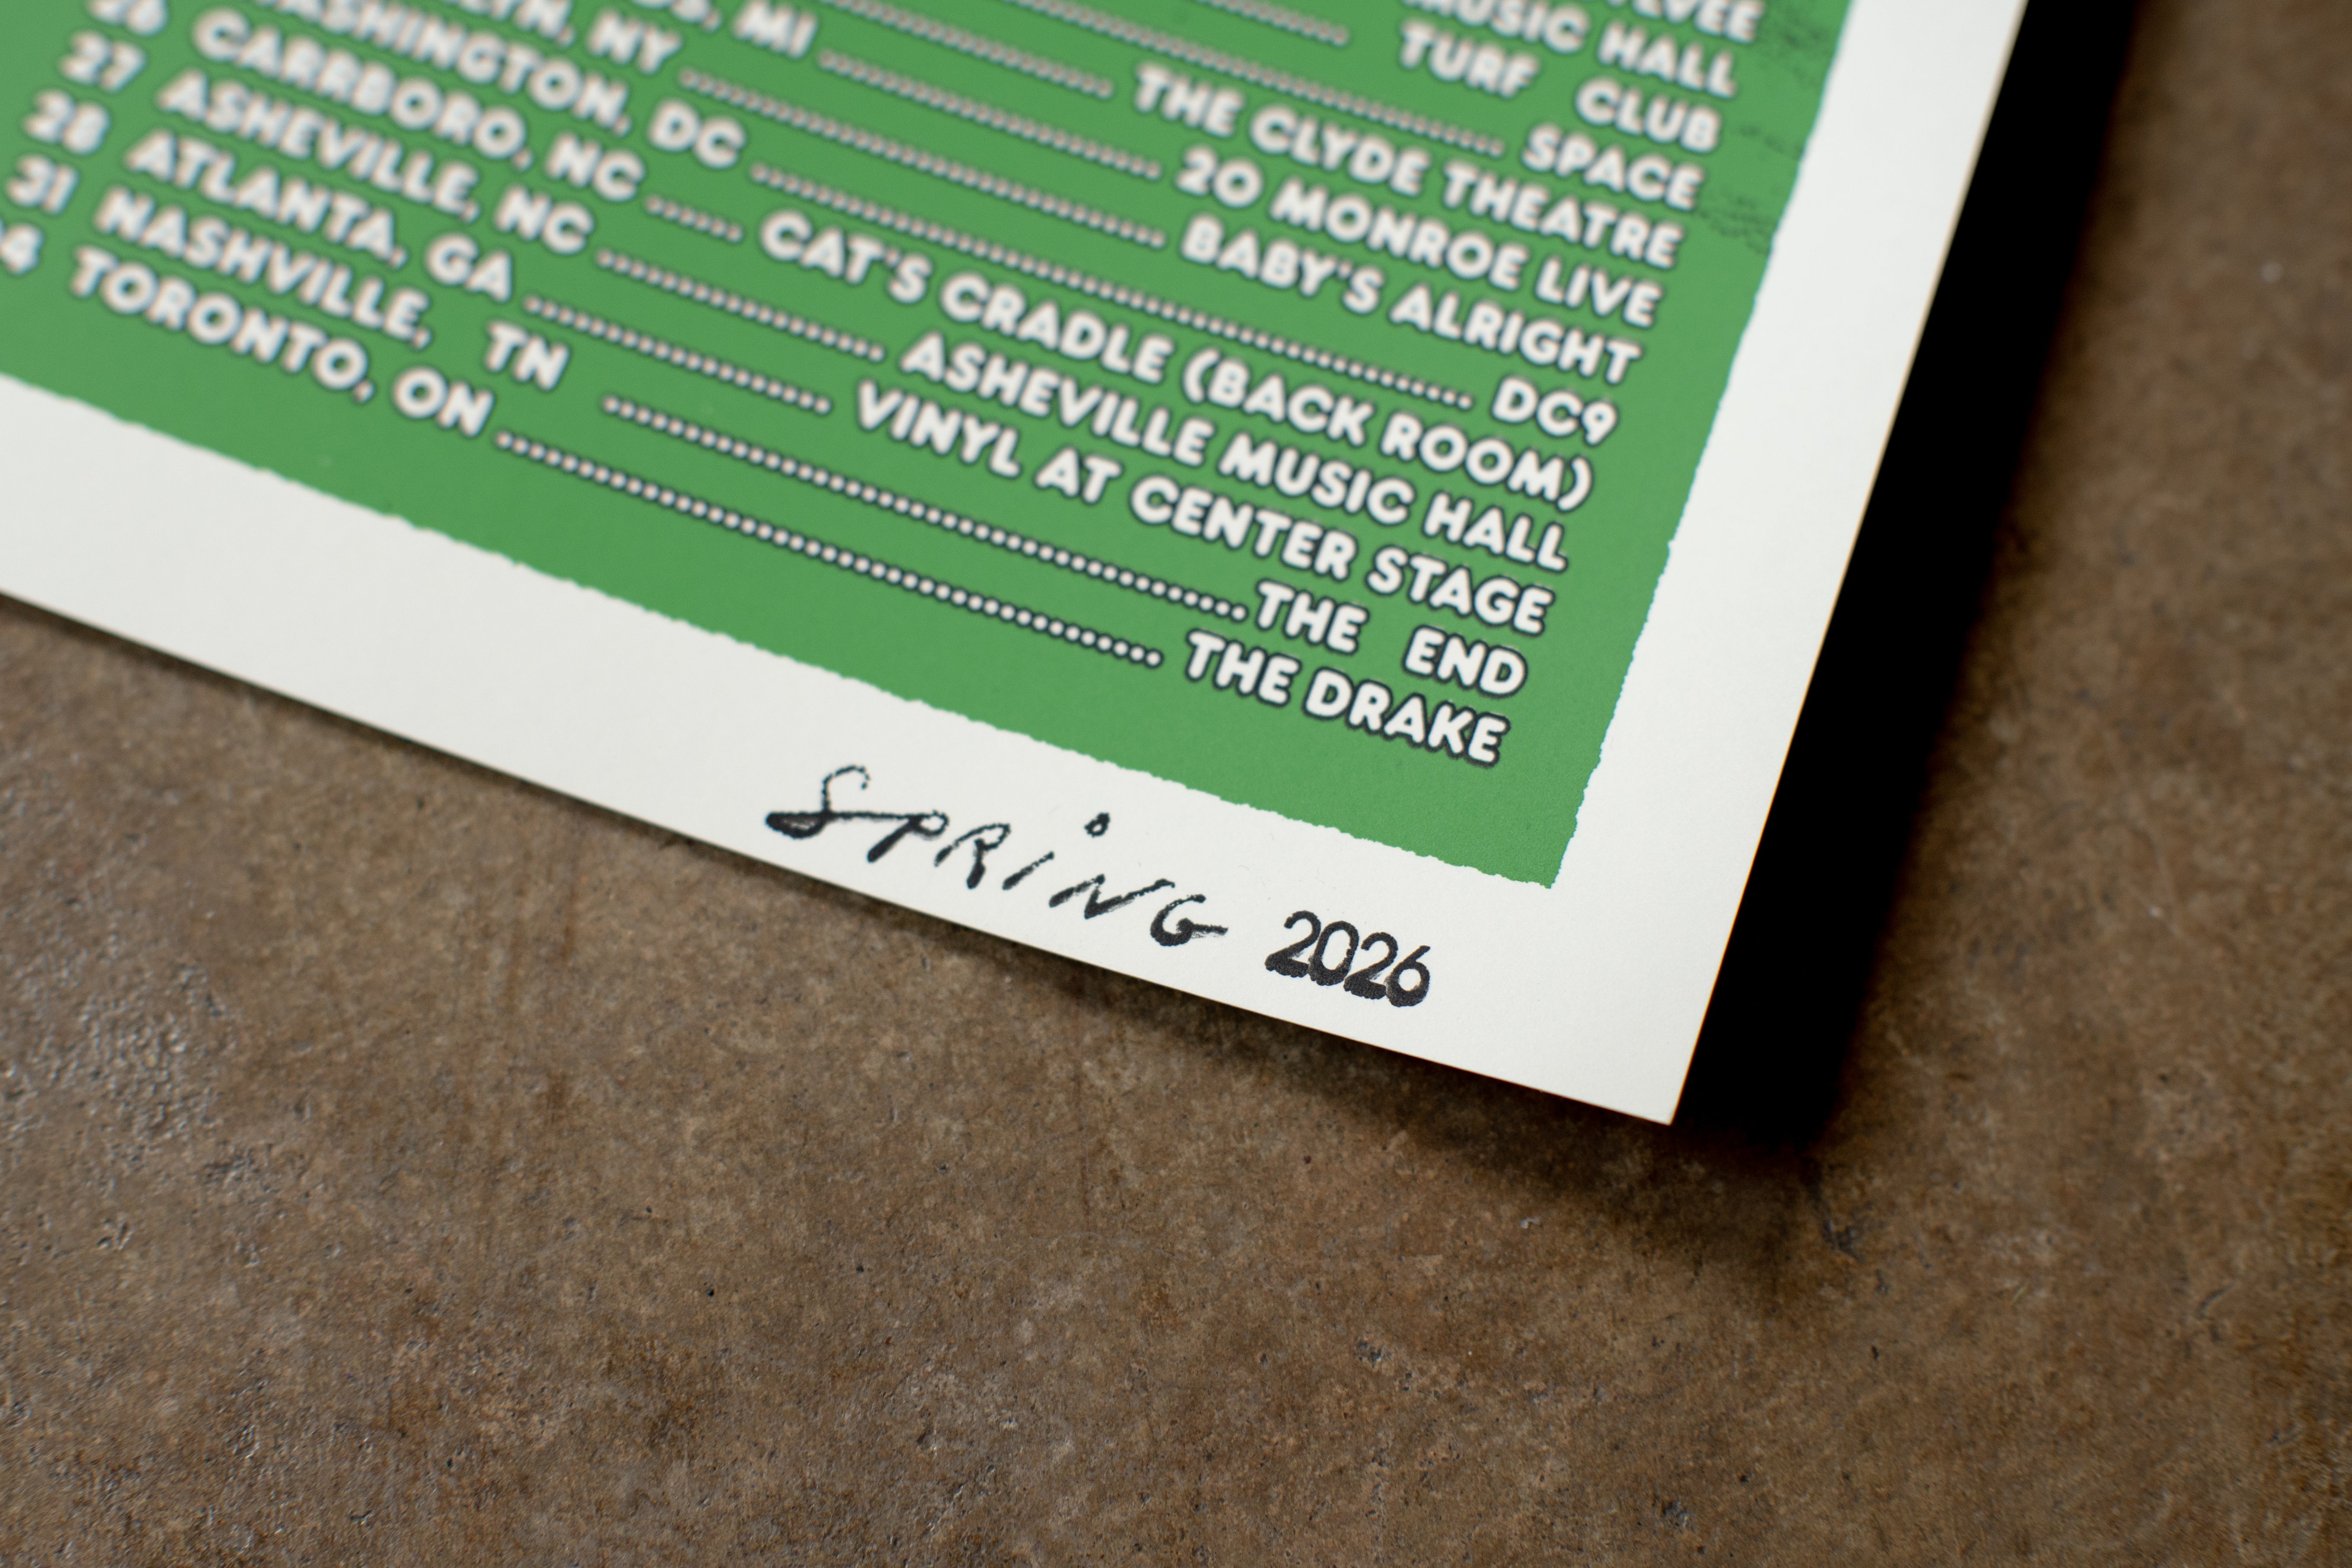 MUSIC HALL
TURF CLUB
SPACE
THE CLYDE THEATRE
MI 20 MONROE LIVE
NY BABY'S ALRIGHT
WASHINGTON, DC DC9
26 CARRBORO, NC ...... CAT'S CRADLE (BACK ROOM)
27 ASHEVILLE, NC ........................ ASHEVILLE MUSIC HALL
28 ATLANTA, GA ........................ VINYL AT CENTER STAGE
31 NASHVILLE, TN ........................ THE END
4 TORONTO, ON ........................ THE DRAKE
SPRiNG 2026